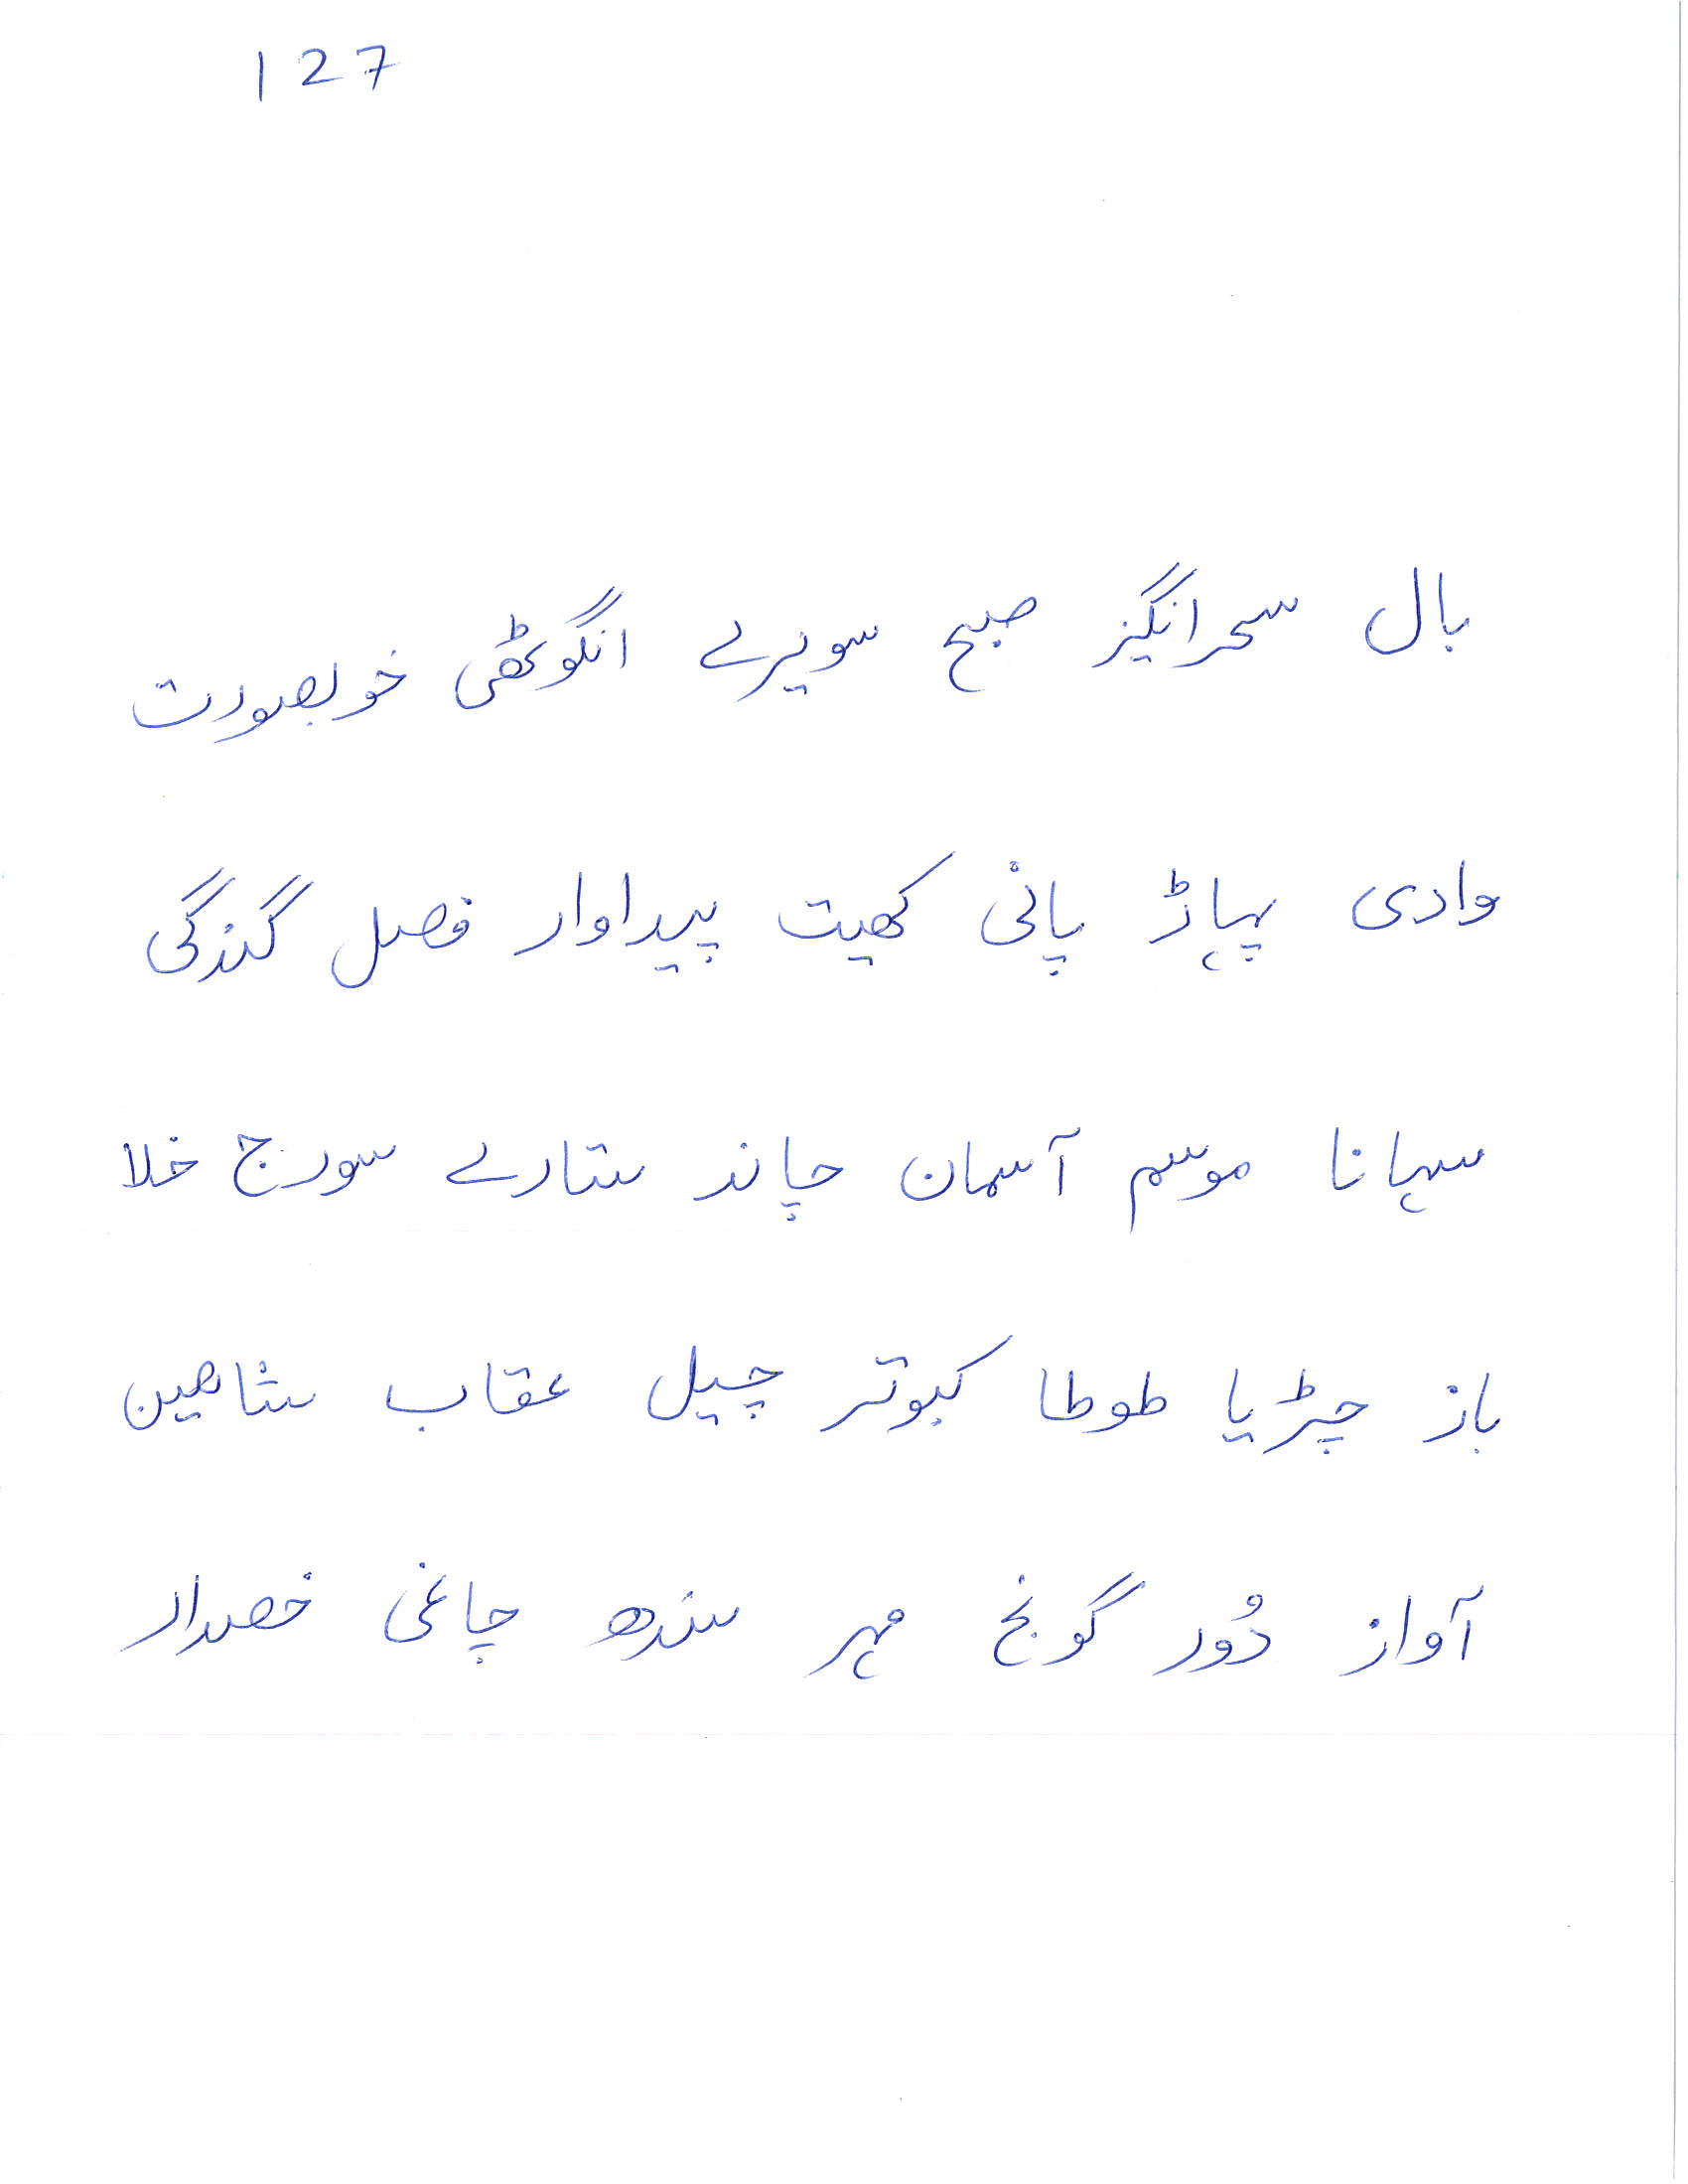 127
بال سحرانگیز صبح سویرے انگوٹھی خوبصورت
وادی پہاڑ پانی کھیت پیداوار فصل گندگی
سہانا موسم آسمان چاند ستارے سورج خلا
باز چڑیا طوطا کبوتر چیل عقاب شاھین
آواز دُور گونج مہر سندھ چاغی خصدار